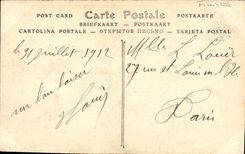 POST CARD Carte Postale POSTKARTE
BRIEFKAART — POSTKAART
CARTOLINA POSTALE — ОТКРЫТОЕ ПИСЬМО — TARJETA POSTAL
le 31 juillet 1912
un bon baiser
Louis
Mlle L Louër
27 rue St Louis en l'Ile
Paris